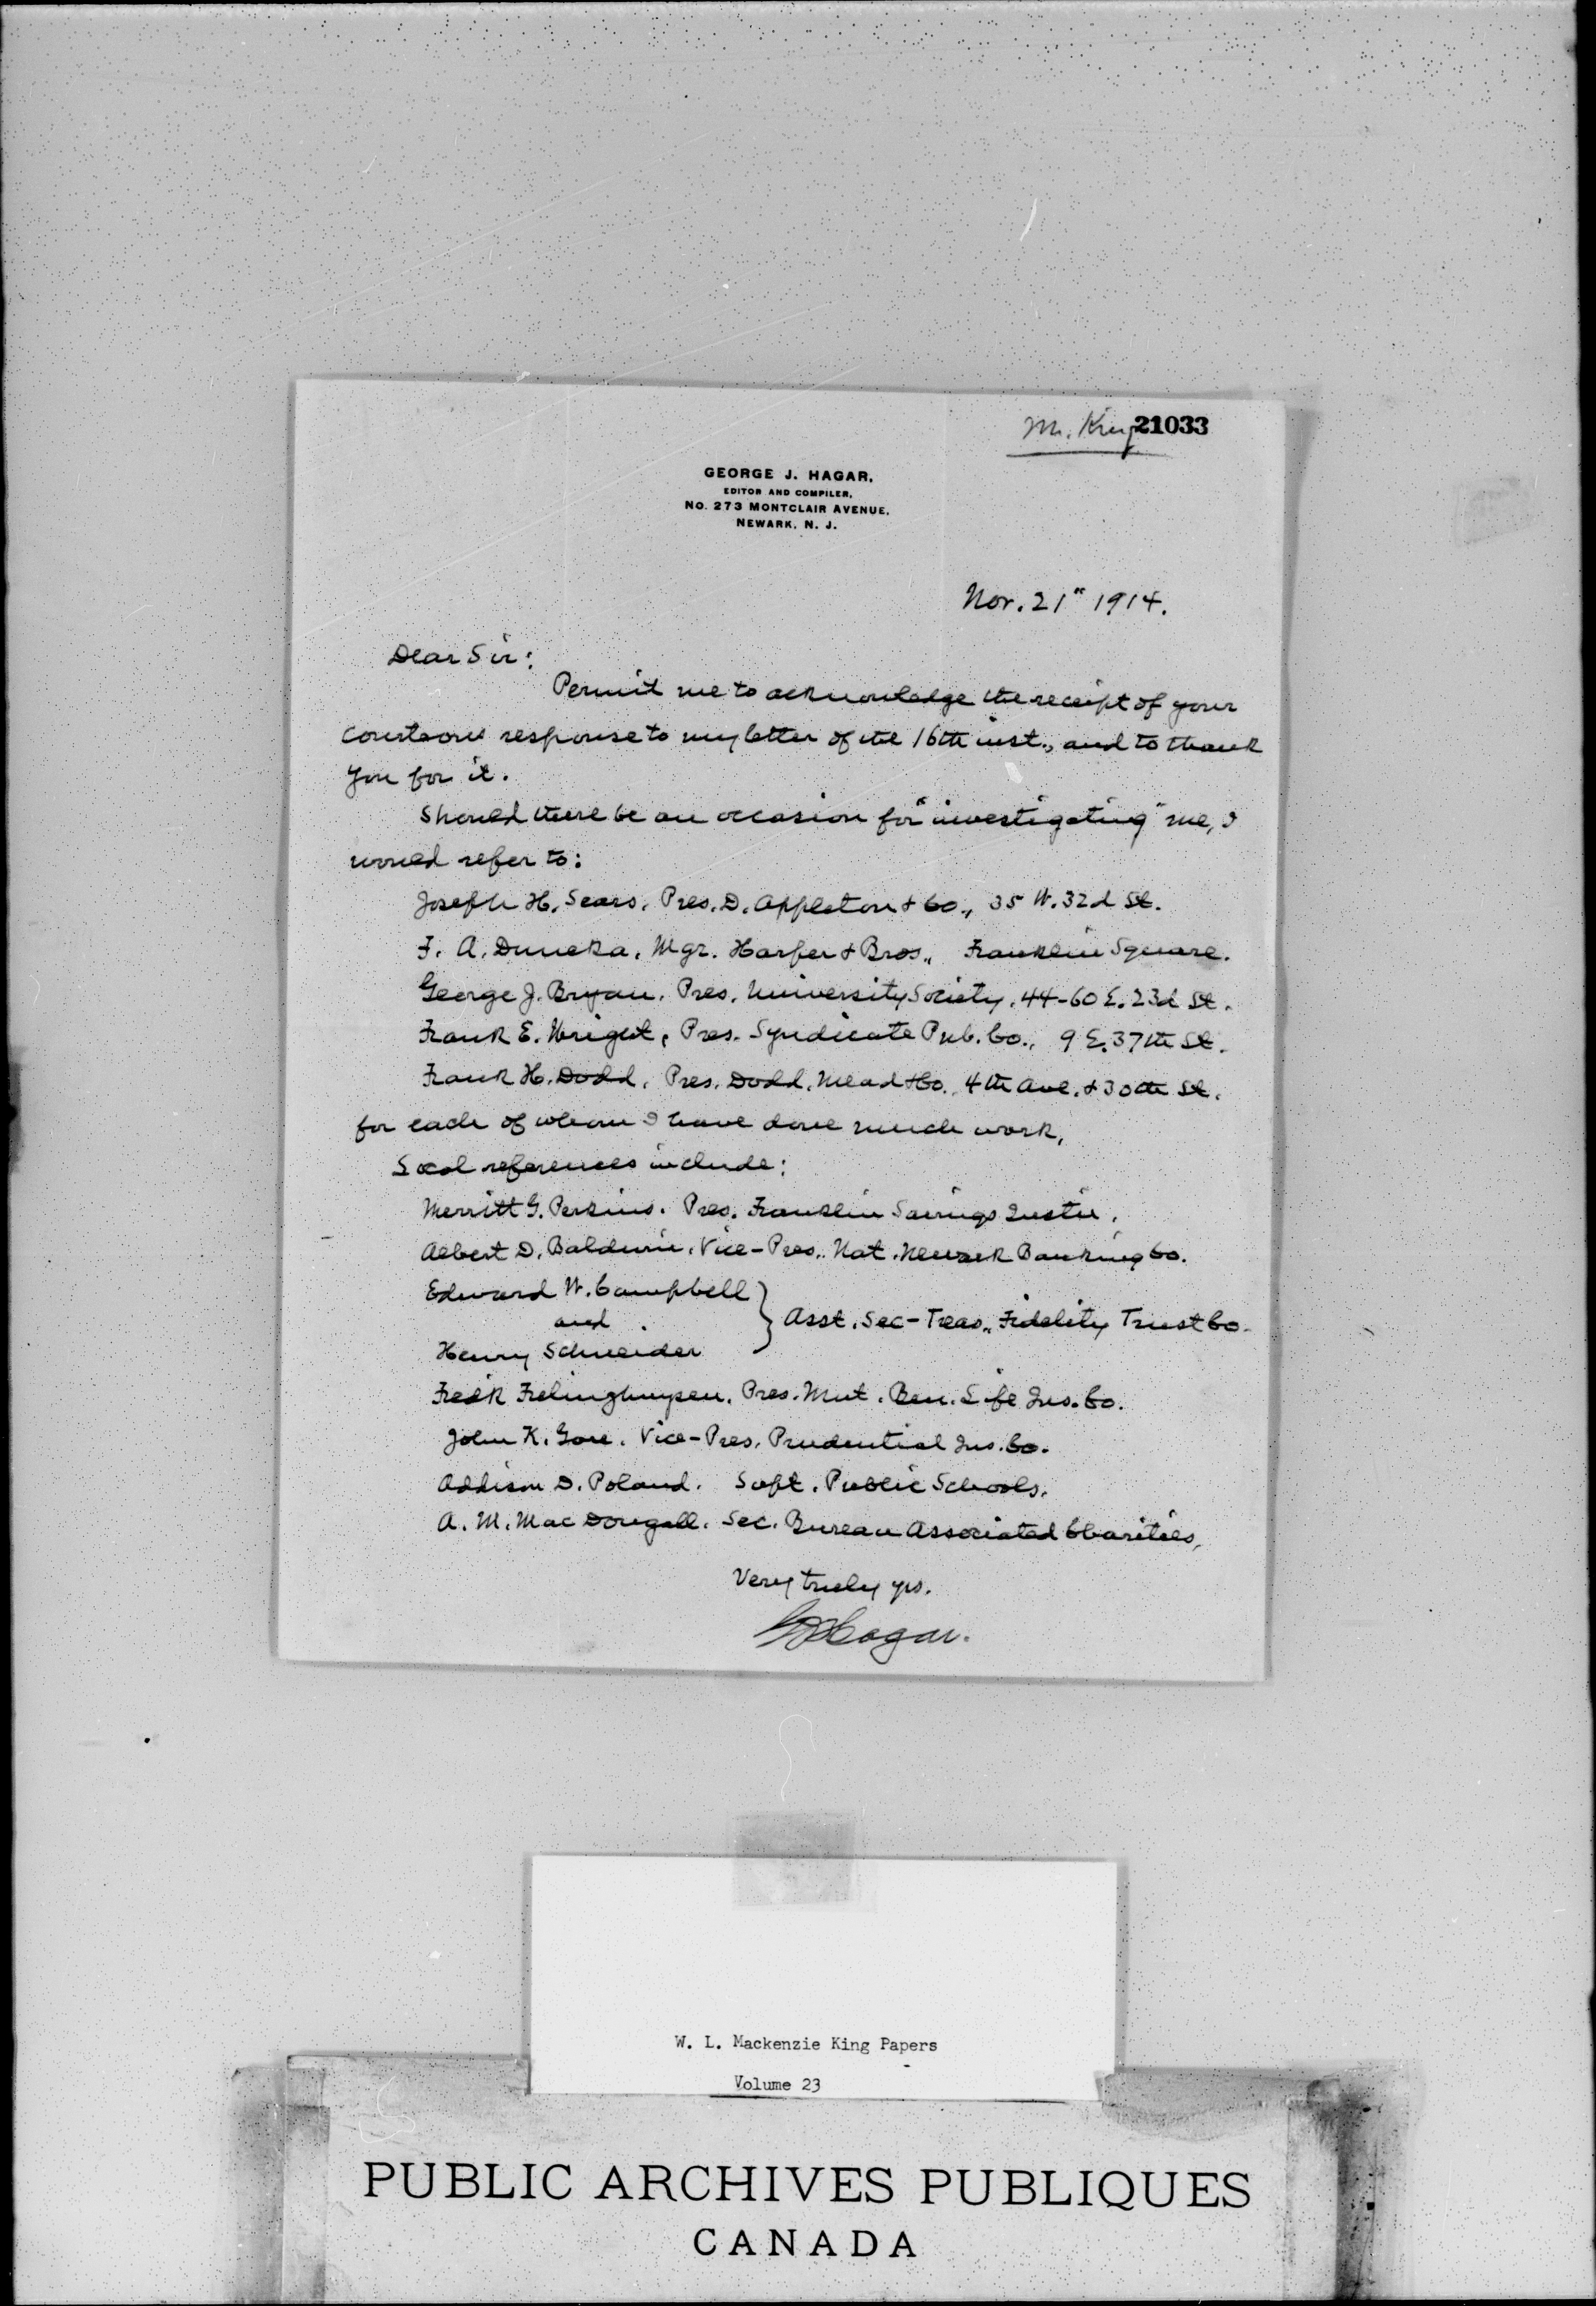 Mr. King 21033
GEORGE J. HAGAR,
EDITOR AND COMPILER,
NO. 273 MONTCLAIR AVENUE,
NEWARK, N. J.
Nov. 21" 1914.
Dear Sir:
Permit me to acknowledge the receipt of your
courteous response to my letter of the 16th inst., and to thank
you for it.
Should there be an occasion for "investigating" me, I
would refer to:
Joseph H. Sears, Pres. D. Appleton & Co., 35 W. 32d St.
F. A. Duneka, Mgr. Harper & Bros., Franklin Square.
George J. Bryan, Pres. University Society, 44-60 E. 23d St.
Frank E. Wright, Pres. Syndicate Pub. Co., 9 E. 37th St.
Frank H. Dodd, Pres. Dodd, Mead & Co., 4th Ave. & 30th St.
for each of whom I have done much work,
Local references include:
Merritt G. Perkins. Pres. Franklin Savings Instn.
Albert D. Baldwin, Vice-Pres., Nat. Newark Banking Co.
Edward W. Campbell
and
Henry Schneider } Asst. Sec-Treas., Fidelity Trust Co.
Fredk Frelinghuysen, Pres. Mut. Ben. Life Ins. Co.
John K. Gore, Vice-Pres. Prudential Ins. Co.
Addison D. Poland. Supt. Public Schools.
A. M. MacDougall. Sec. Bureau Associated Charities,
Very truly yrs.
GJHagar.
W. L. Mackenzie King Papers
Volume 23
PUBLIC ARCHIVES PUBLIQUES
CANADA